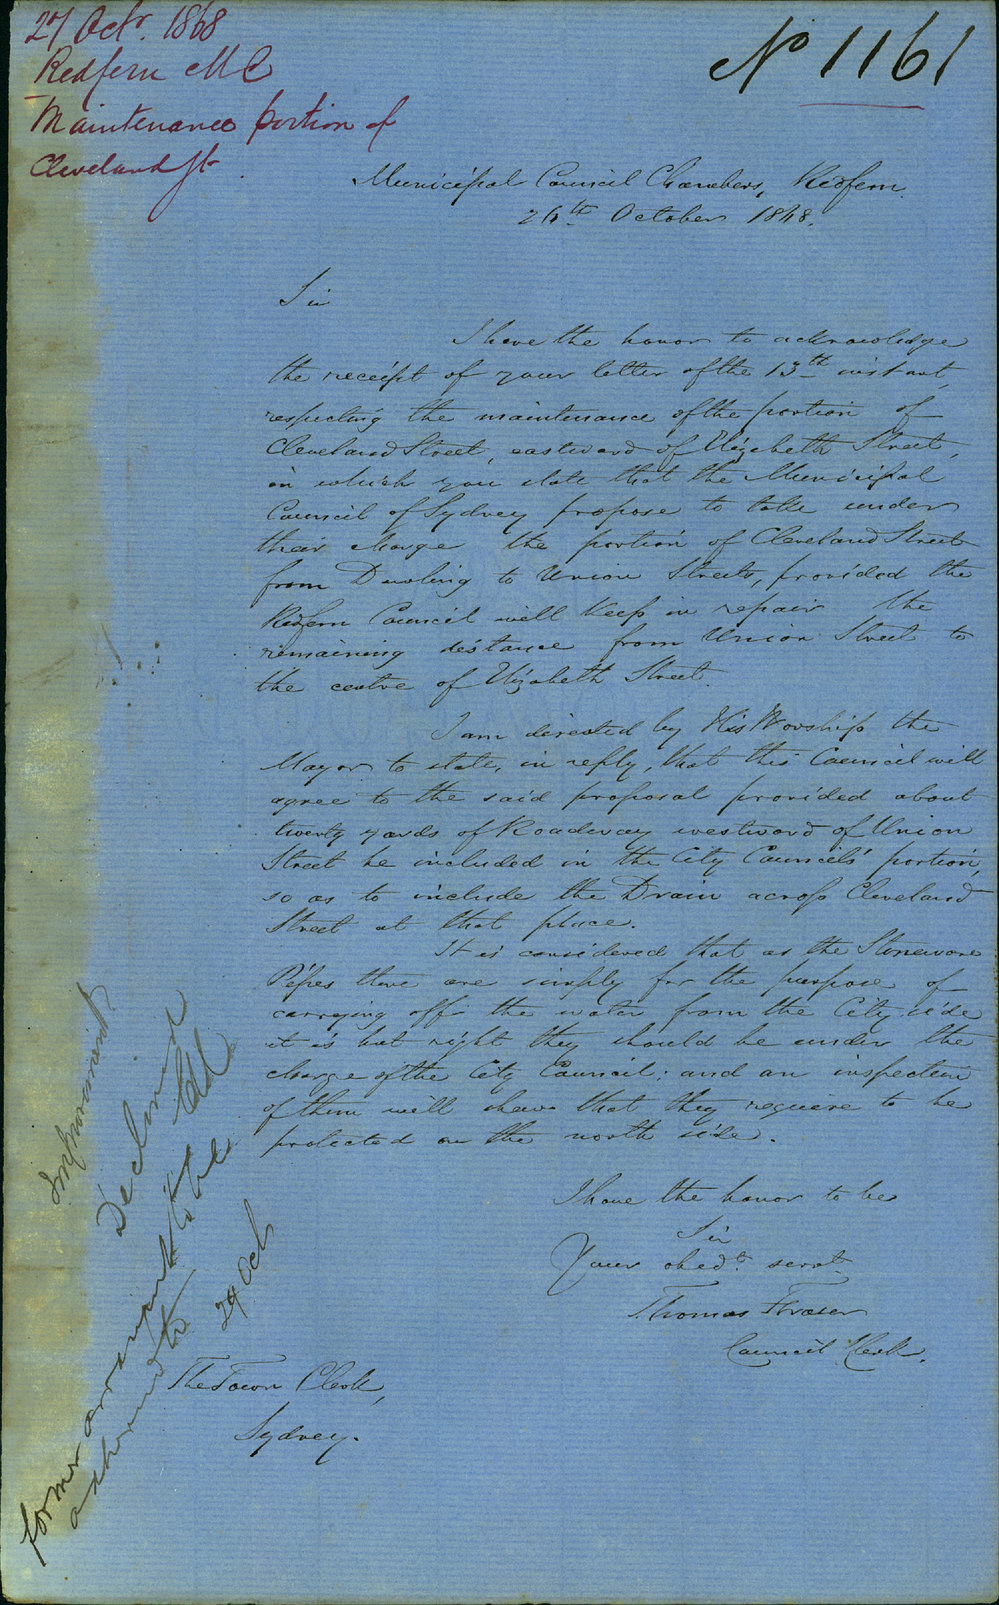 27 Octr. 1868
Redfern M C
Maintenance portion of
Cleveland St.
No 1161
Municipal Council Chambers, Redfern
26th October 1868.
Sir
I have the honor to acknowledge
the receipt of your letter of the 13th instant,
respecting the maintenance of the portion of
Cleveland Street, eastward of Elizabeth Street,
in which you state that the Municipal
Council of Sydney propose to take under
their charge the portion of Cleveland Street
from Dowling to Union Streets, provided the
Redfern Council will keep in repair the
remaining distance from Union Street to
the centre of Elizabeth Street.
I am directed by His Worship the
Mayor to state, in reply, that this Council will
agree to the said proposal provided about
twenty yards of Roadway westward of Union
Street be included in the City Councils' portion,
so as to include the Drain across Cleveland
Street at that place.
It is considered that as the Stoneware
Pipes there are simply for the purpose of
carrying off the water from the City side
it is but right they should be under the
charge of the City Council: and an inspection
of them will shew that they require to be
protected on the north side.
I have the honor to be
Sir
Your obedt. servt.
Thomas Fraser
Council Clerk.
The Town Clerk,
Sydney.
Improvement
Declined
former arrangement to be
adhered to
29 Oct